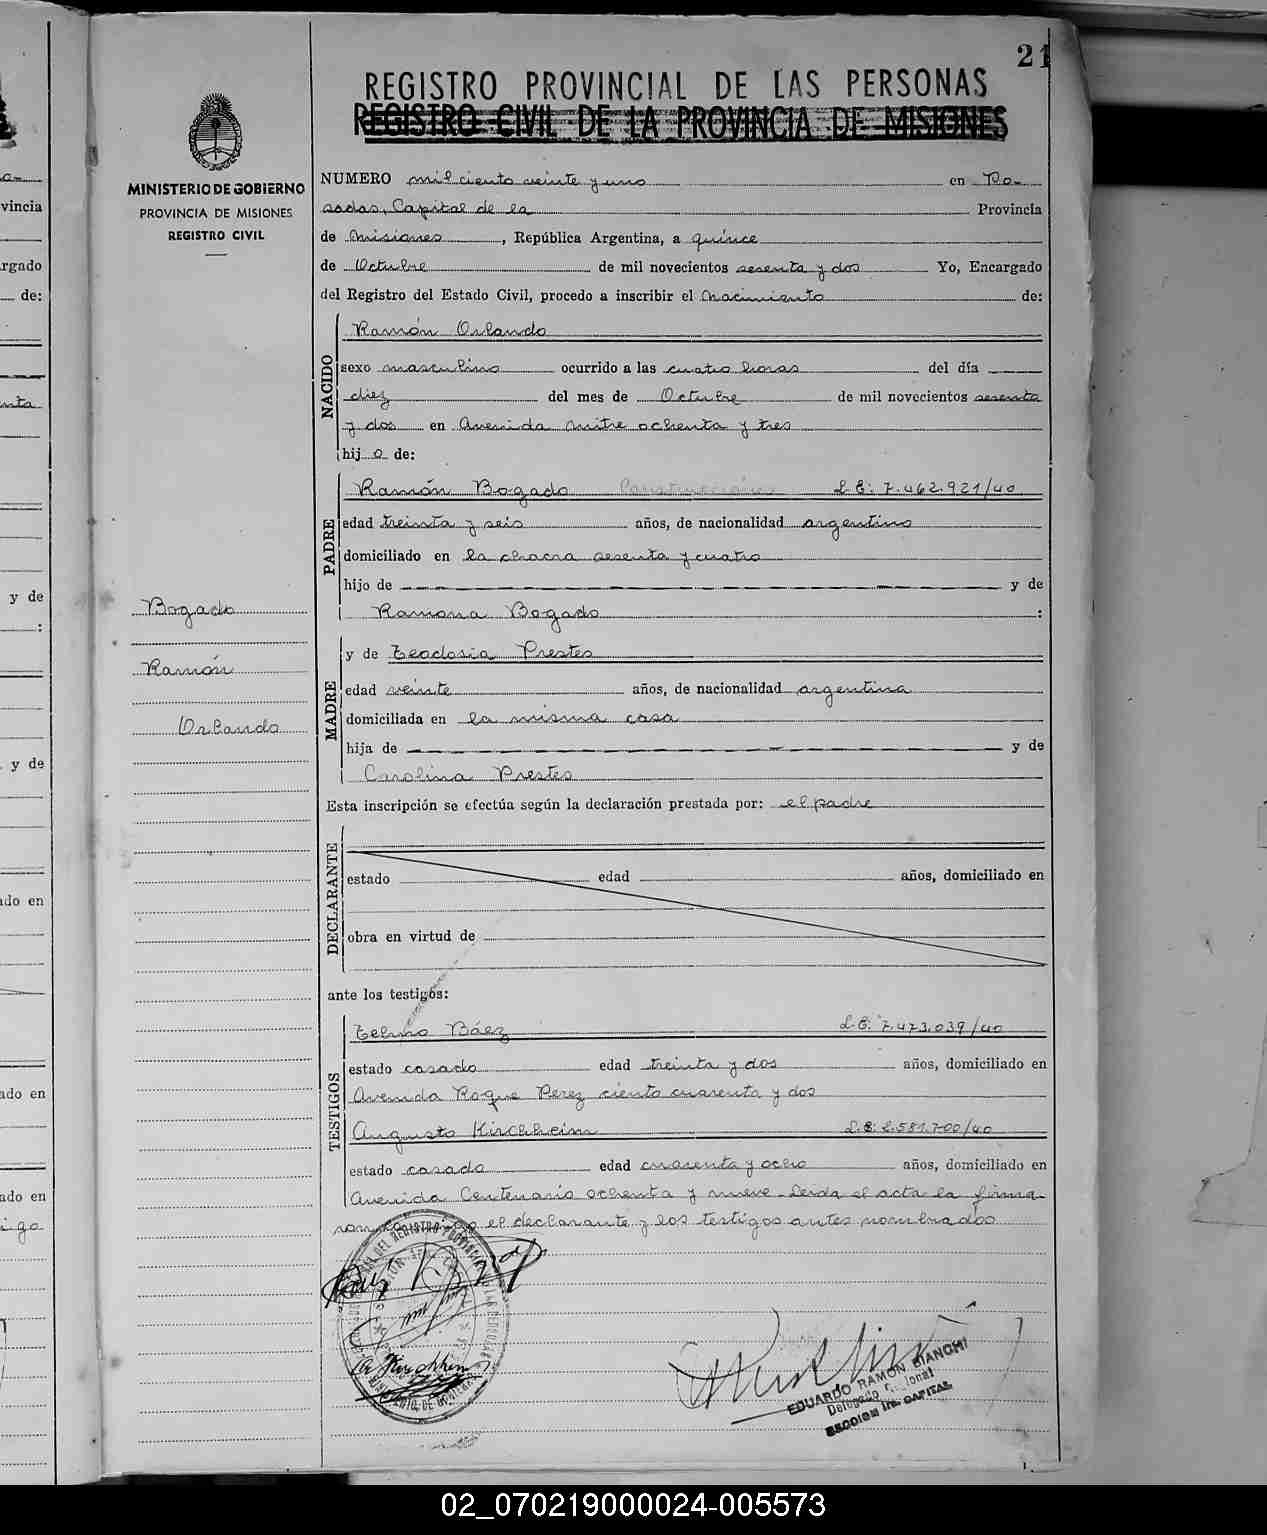 21
REGISTRO PROVINCIAL DE LAS PERSONAS
REGISTRO CIVIL DE LA PROVINCIA DE MISIONES
MINISTERIO DE GOBIERNO
PROVINCIA DE MISIONES
REGISTRO CIVIL
NUMERO mil ciento veinte y uno en Po-
sadas, Capital de la Provincia
de Misiones, República Argentina, a quince
de Octubre de mil novecientos sesenta y dos Yo, Encargado
del Registro del Estado Civil, procedo a inscribir el nacimiento de:
NACIDO
Ramón Orlando
sexo masculino ocurrido a las cuatro horas del día
diez del mes de Octubre de mil novecientos sesenta
y dos en Avenida Mitre ochenta y tres
hijo de:
PADRE
Ramón Bogado L.E: 7.462.921/40
edad treinta y seis años, de nacionalidad argentino
domiciliado en la chacra sesenta y cuatro
hijo de y de
Ramona Bogado :
Bogado
Ramón
Orlando
MADRE
y de Teodosia Prestes
edad veinte años, de nacionalidad argentina
domiciliada en la misma casa
hija de y de
Carolina Prestes
Esta inscripción se efectúa según la declaración prestada por: el padre
DECLARANTE
estado edad años, domiciliado en
obra en virtud de
ante los testigos:
TESTIGOS
Telmo Báez L.E: 7.473.039/40
estado casado edad treinta y dos años, domiciliado en
Avenida Roque Perez ciento cuarenta y dos
Augusto Kirchheim L.E: 2.581.700/40
estado casado edad cuarenta y ocho años, domiciliado en
Avenida Centenario ochenta y nueve. Leida el acta la firma
el declarante y los testigos antes nombrados
EDUARDO RAMON BIANCHI
vincia
rgado
de:
y de
:
y de
ado en
ado en
ado en
02_070219000024-005573